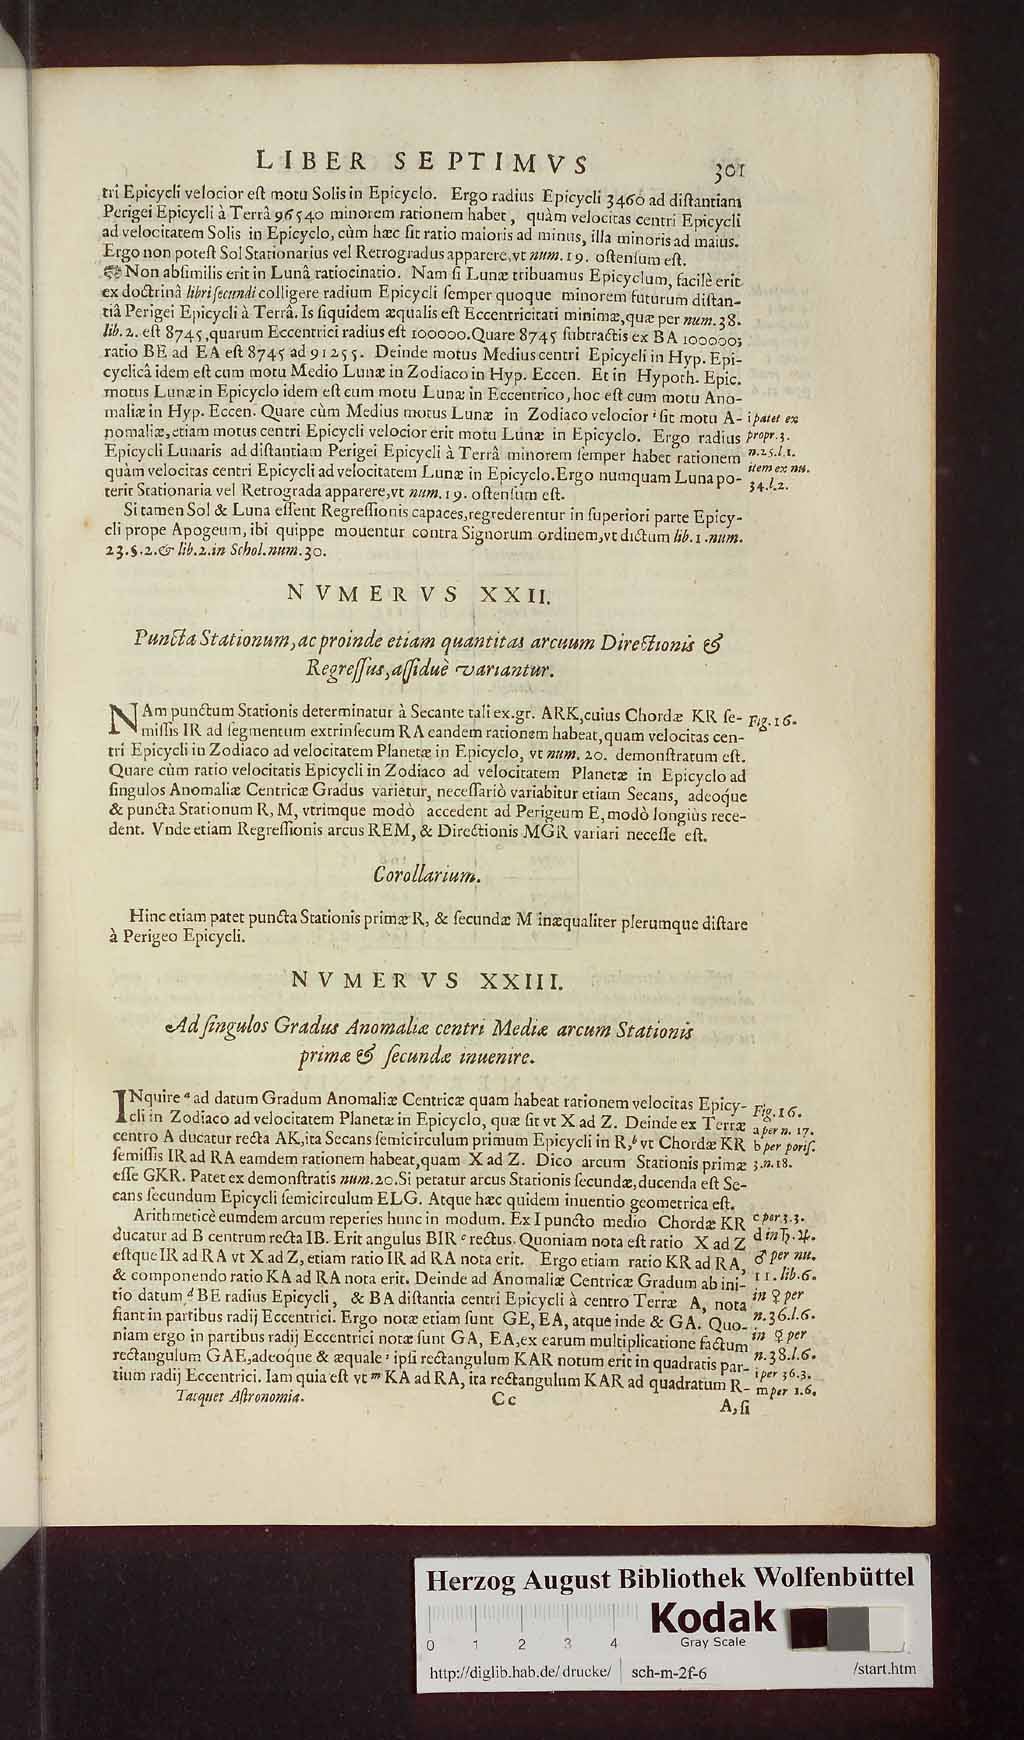 LIBER SEPTIMVS 301
tri Epicycli velocior eſt motu Solis in Epicyclo. Ergo radius Epicycli 3460 ad diſtantiam
Perigei Epicycli à Terrâ 96540 minorem rationem habet, quàm velocitas centri Epicycli
ad velocitatem Solis in Epicyclo, cùm hæc ſit ratio maioris ad minus, illa minoris ad maius.
Ergo non poteſt Sol Stationarius vel Retrogradus apparere, vt num. 19. oſtenſum eſt.
Non abſimilis erit in Lunâ ratiocinatio. Nam ſi Lunæ tribuamus Epicyclum, facilè erit
ex doctrinâ libri ſecundi colligere radium Epicycli ſemper quoque minorem futurum diſtan-
tiâ Perigei Epicycli à Terrâ. Is ſiquidem æqualis eſt Eccentricitati minimæ, quæ per num. 38.
lib. 2. eſt 8745, quarum Eccentrici radius eſt 100000. Quare 8745 ſubtractis ex BA 100000;
ratio BE ad EA eſt 8745 ad 91255. Deinde motus Medius centri Epicycli in Hyp. Epi-
cyclicâ idem eſt cum motu Medio Lunæ in Zodiaco in Hyp. Eccen. Et in Hypoth. Epic.
motus Lunæ in Epicyclo idem eſt cum motu Lunæ in Eccentrico, hoc eſt cum motu Ano-
maliæ in Hyp. Eccen. Quare cùm Medius motus Lunæ in Zodiaco velocior i ſit motu A- i patet ex
nomaliæ, etiam motus centri Epicycli velocior erit motu Lunæ in Epicyclo. Ergo radius propr. 3.
Epicycli Lunaris ad diſtantiam Perigei Epicycli à Terrâ minorem ſemper habet rationem n. 25. l. 1.
quàm velocitas centri Epicycli ad velocitatem Lunæ in Epicyclo. Ergo numquam Luna po- item ex nu.
terit Stationaria vel Retrograda apparere, vt num. 19. oſtenſum eſt. 34. l. 2.
Si tamen Sol & Luna eſſent Regreſſionis capaces, regrederentur in ſuperiori parte Epicy-
cli prope Apogeum, ibi quippe mouentur contra Signorum ordinem, vt dictum lib. 1. num.
23. §. 2. & lib. 2. in Schol. num. 30.
NVMERVS XXII.
Puncta Stationum, ac proinde etiam quantitas arcuum Directionis &
Regreſſus, aſſiduè variantur.
NAm punctum Stationis determinatur à Secante tali ex. gr. ARK, cuius Chordæ KR ſe- Fig. 16.
miſſis IR ad ſegmentum extrinſecum RA eandem rationem habeat, quam velocitas cen-
tri Epicycli in Zodiaco ad velocitatem Planetæ in Epicyclo, vt num. 20. demonſtratum eſt.
Quare cùm ratio velocitatis Epicycli in Zodiaco ad velocitatem Planetæ in Epicyclo ad
ſingulos Anomaliæ Centricæ Gradus varietur, neceſſariò variabitur etiam Secans, adeoque
& puncta Stationum R, M, vtrimque modò accedent ad Perigeum E, modò longiùs rece-
dent. Vnde etiam Regreſſionis arcus REM, & Directionis MGR variari neceſſe eſt.
Corollarium.
Hinc etiam patet puncta Stationis primæ R, & ſecundæ M inæqualiter plerumque diſtare
à Perigeo Epicycli.
NVMERVS XXIII.
Ad ſingulos Gradus Anomaliæ centri Mediæ arcum Stationis
primæ & ſecundæ inuenire.
INquire a ad datum Gradum Anomaliæ Centricæ quam habeat rationem velocitas Epicy- Fig. 16.
cli in Zodiaco ad velocitatem Planetæ in Epicyclo, quæ ſit vt X ad Z. Deinde ex Terræ a per n. 17.
centro A ducatur recta AK, ita Secans ſemicirculum primum Epicycli in R, b vt Chordæ KR b per poriſ.
ſemiſſis IR ad RA eamdem rationem habeat, quam X ad Z. Dico arcum Stationis primæ 3. n. 18.
eſſe GKR. Patet ex demonſtratis num. 20. Si petatur arcus Stationis ſecundæ, ducenda eſt Se-
cans ſecundum Epicycli ſemicirculum ELG. Atque hæc quidem inuentio geometrica eſt.
Arithmeticè eumdem arcum reperies hunc in modum. Ex I puncto medio Chordæ KR c per 3. 3.
ducatur ad B centrum recta IB. Erit angulus BIR c rectus. Quoniam nota eſt ratio X ad Z d in ♄. ♃.
eſtque IR ad RA vt X ad Z, etiam ratio IR ad RA nota erit. Ergo etiam ratio KR ad RA, ♂ per nu.
& componendo ratio KA ad RA nota erit. Deinde ad Anomaliæ Centricæ Gradum ab ini- 11. lib. 6.
tio datum, d BE radius Epicycli, & BA diſtantia centri Epicycli à centro Terræ A, nota in ♀ per
fiant in partibus radij Eccentrici. Ergo notæ etiam ſunt GE, EA, atque inde & GA. Quo- n. 36. l. 6.
niam ergo in partibus radij Eccentrici notæ ſunt GA, EA, ex earum multiplicatione factum in ☿ per
rectangulum GAE, adeoque & æquale i ipſi rectangulum KAR notum erit in quadratis par- n. 38. l. 6.
tium radij Eccentrici. Iam quia eſt vt m KA ad RA, ita rectangulum KAR ad quadratum R- i per 36. 3.
m per 1. 6.
Tacquet Aſtronomia. Cc A, ſi
Herzog August Bibliothek Wolfenbüttel
Kodak
Gray Scale
0 1 2 3 4
http://diglib.hab.de/drucke/ sch-m-2f-6 /start.htm